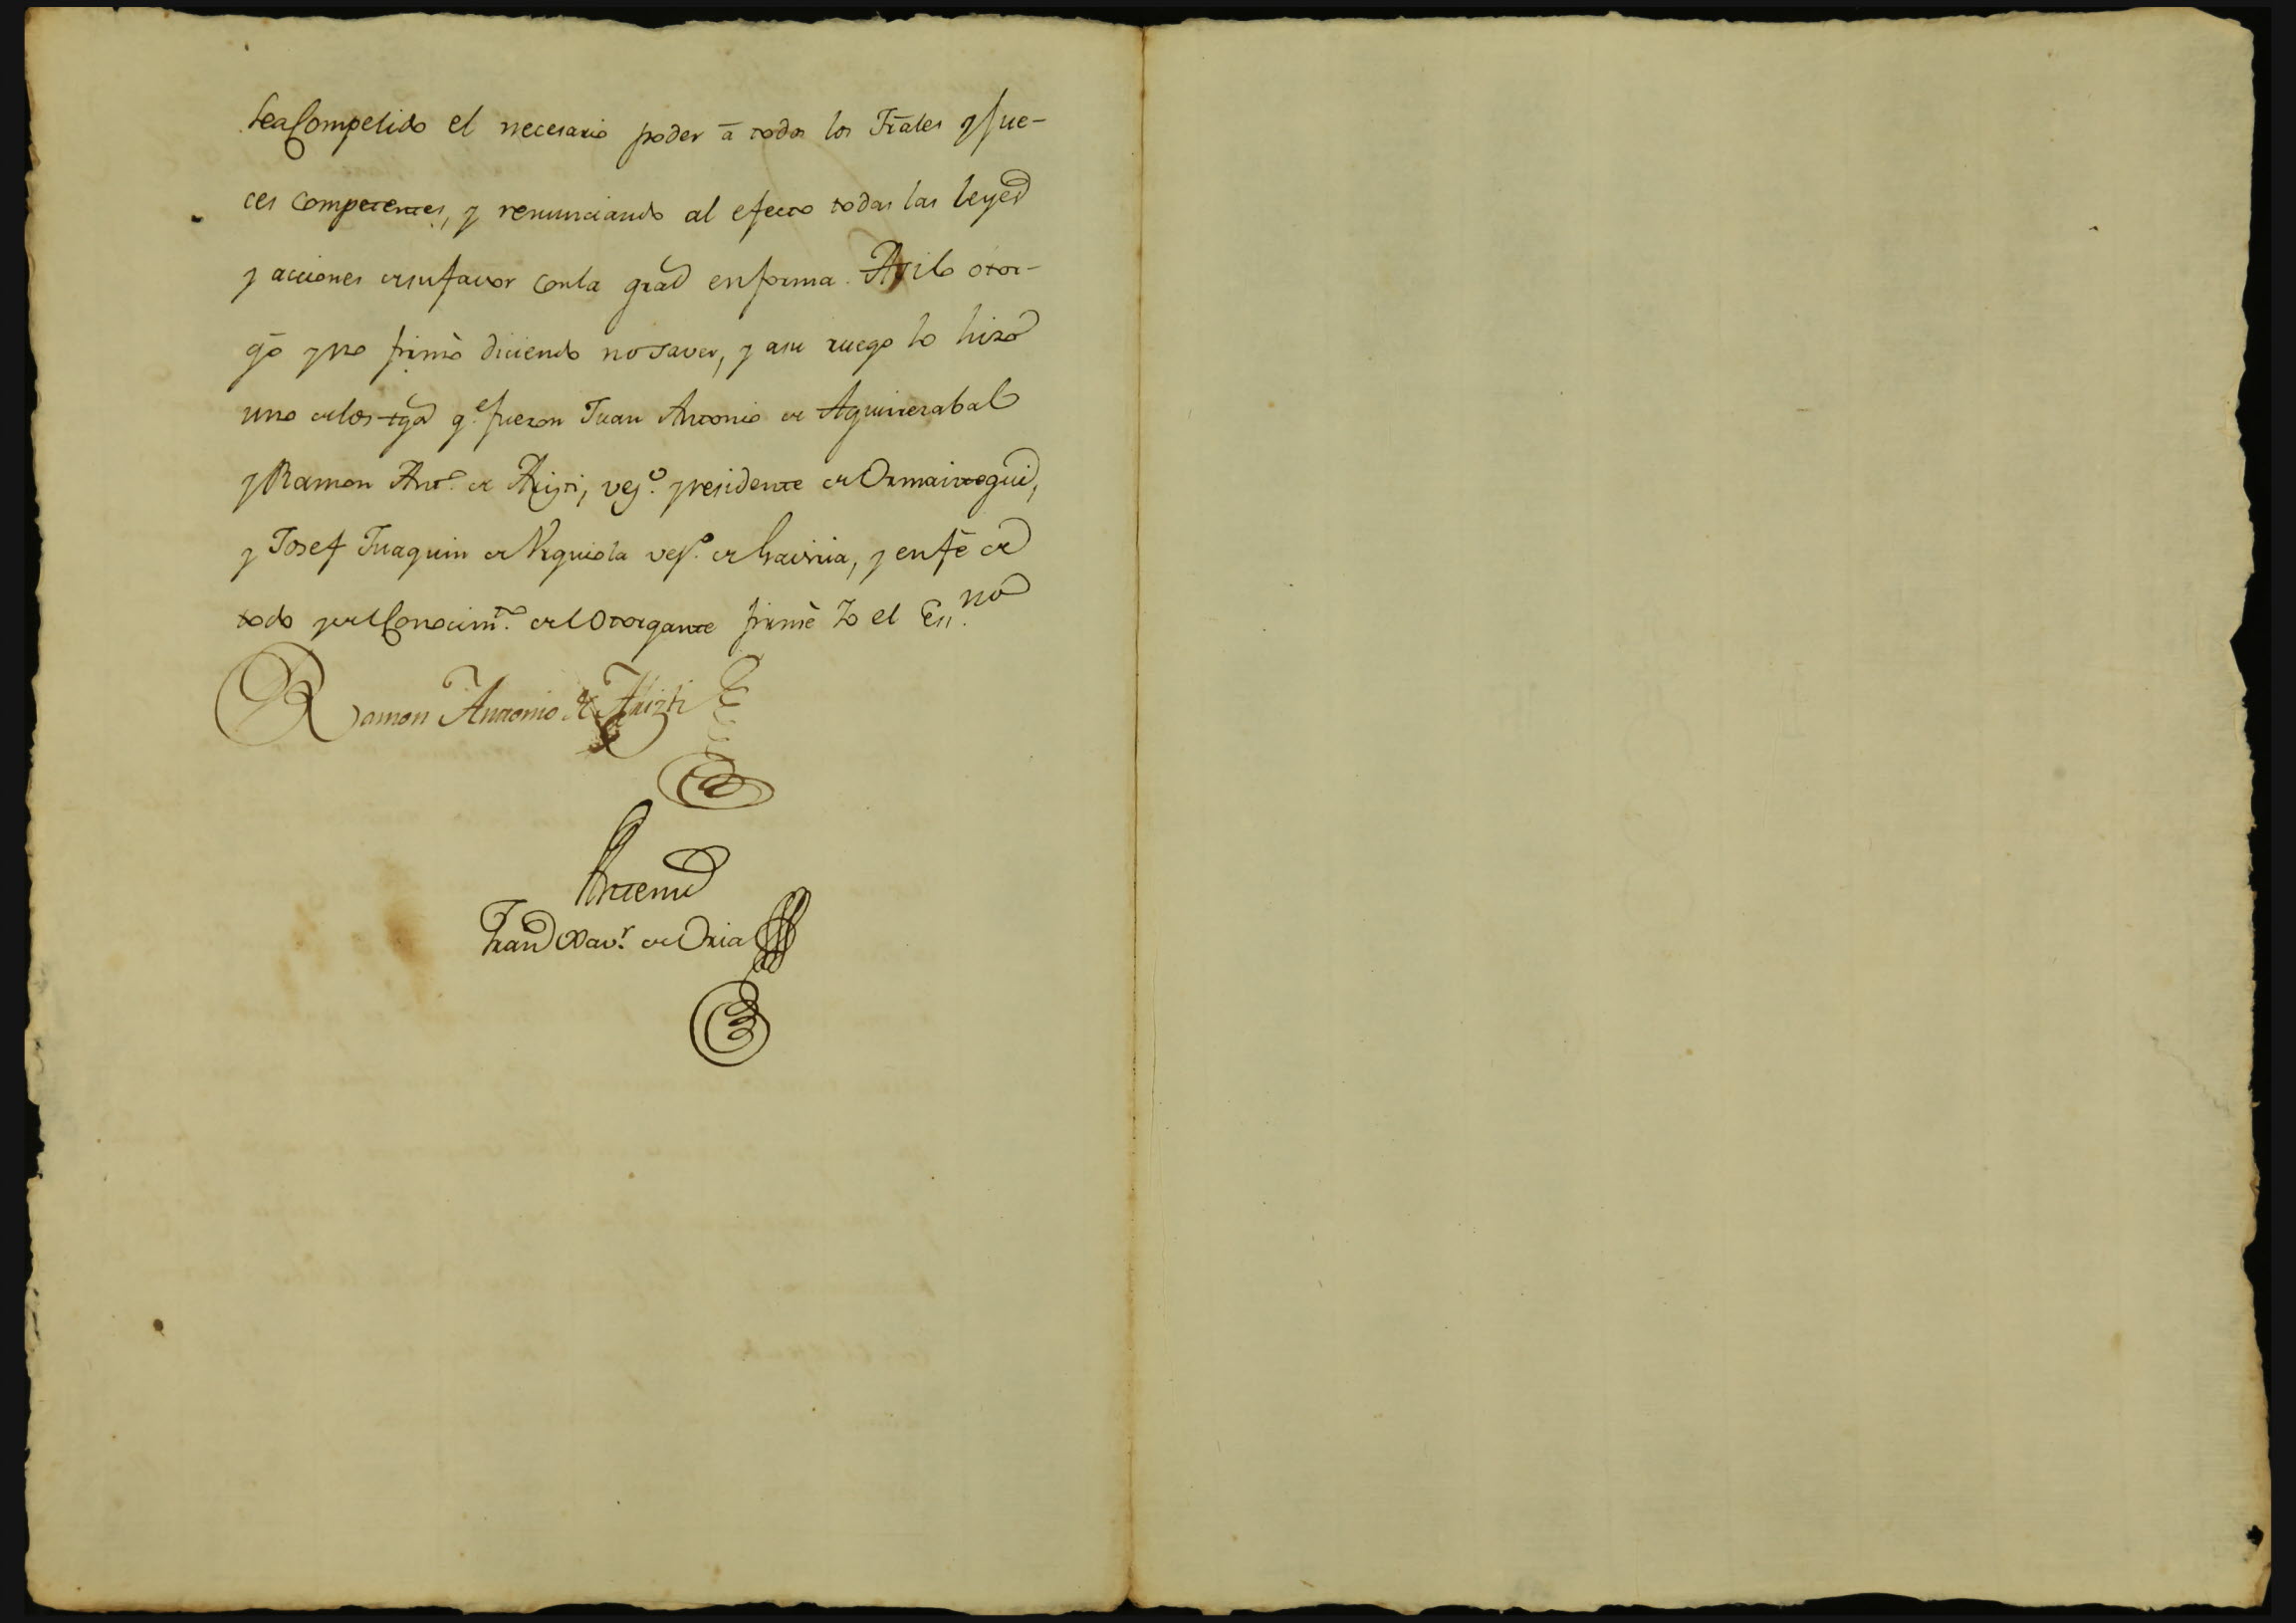 sea Compelido el necesario poder ā todos los Trāles y Jue-
ces competentes, y renunciando al efecto todas las leyes
y acciones de su favor con la grāl en forma. Asi lo otor-
gō y no firmò diciendo no saver, y a su ruego lo hizo
uno de los tgos q.e fueron Juan Antonio de Aguirrezabal
y Ramon Ant.o de Arizti, vez.o y residente de Ormaiztegui,
y Josef Juaquin de Urquiola vez.o de Gaviria, y en fè de
todo y del Conocim.to del Otorgante firmè Yo el Es.no
Ramon Antonio de Arizti
Antemi
Fran.co Xav.r de Oria